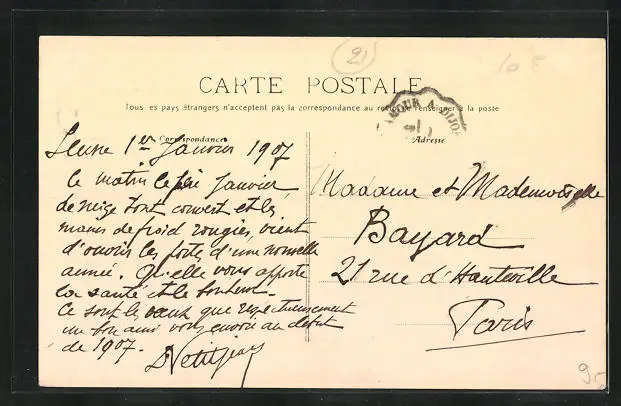 2
10 €
CARTE POSTALE
Tous les pays étrangers n'acceptent pas la correspondance au recto se renseigner à la poste
AMOUR A DIJON
Correspondance
Adresse
1er Janvier 1907
Ce matin le père Janvier
de neige tout couvert et les
mains de froid rougies, vient
d'ouvrir les portes d'une nouvelle
année. Qu'elle vous apporte
la santé et le bonheur.
Ce sont les vœux que respectueusement
un bon ami vous envoie au début
de 1907.
D Petitjean
Madame et Mademoiselle
Bayard
21 rue d'Hauteville
Paris
95